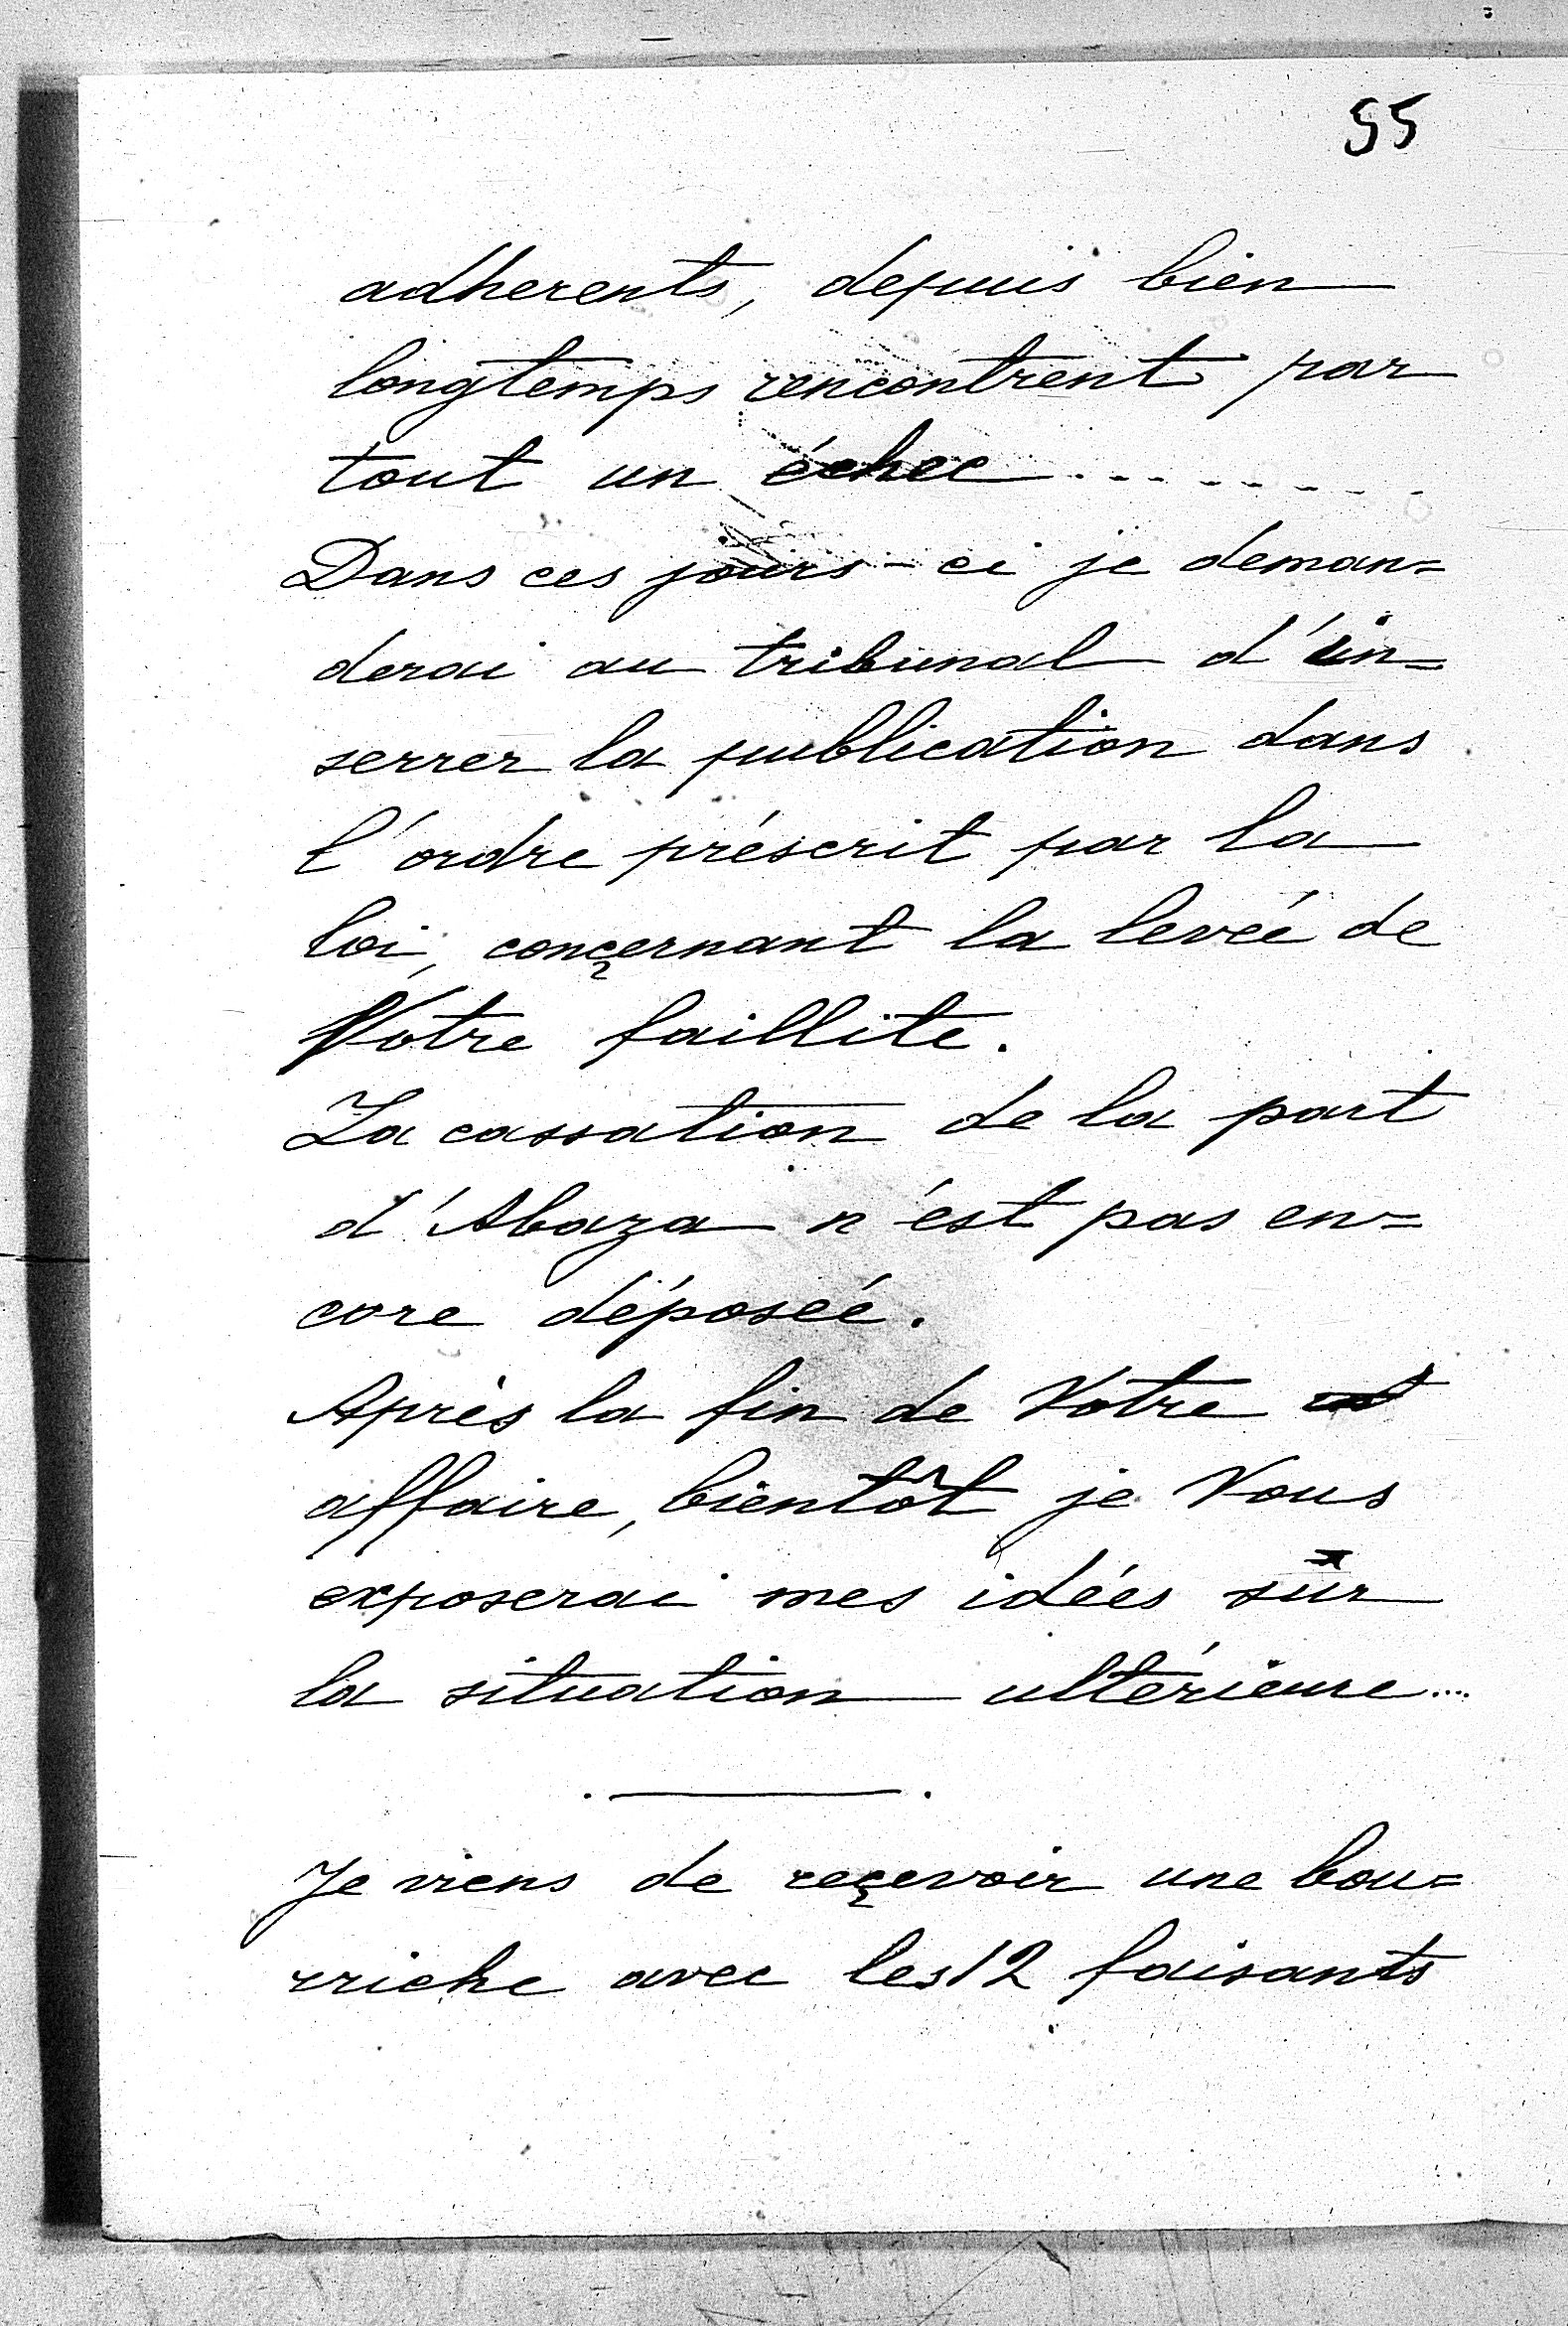 55
adherents, depuis bien
longtemps rencontrent par
tout un échec ........
Dans ces jours-ci je deman=
derai au tribunal d'in=
serrer la publication dans
l'ordre préscrit par la
loi, conçernant la levée de
Votre faillite.
La cassation de la part
d'Abaza n'est pas en=
core déposée.
Après la fin de Votre
affaire, bientôt je Vous
exposerai mes idées sur
la situation ultérieure...
Je viens de reçevoir une bou=
rriche avec les 12 faisants